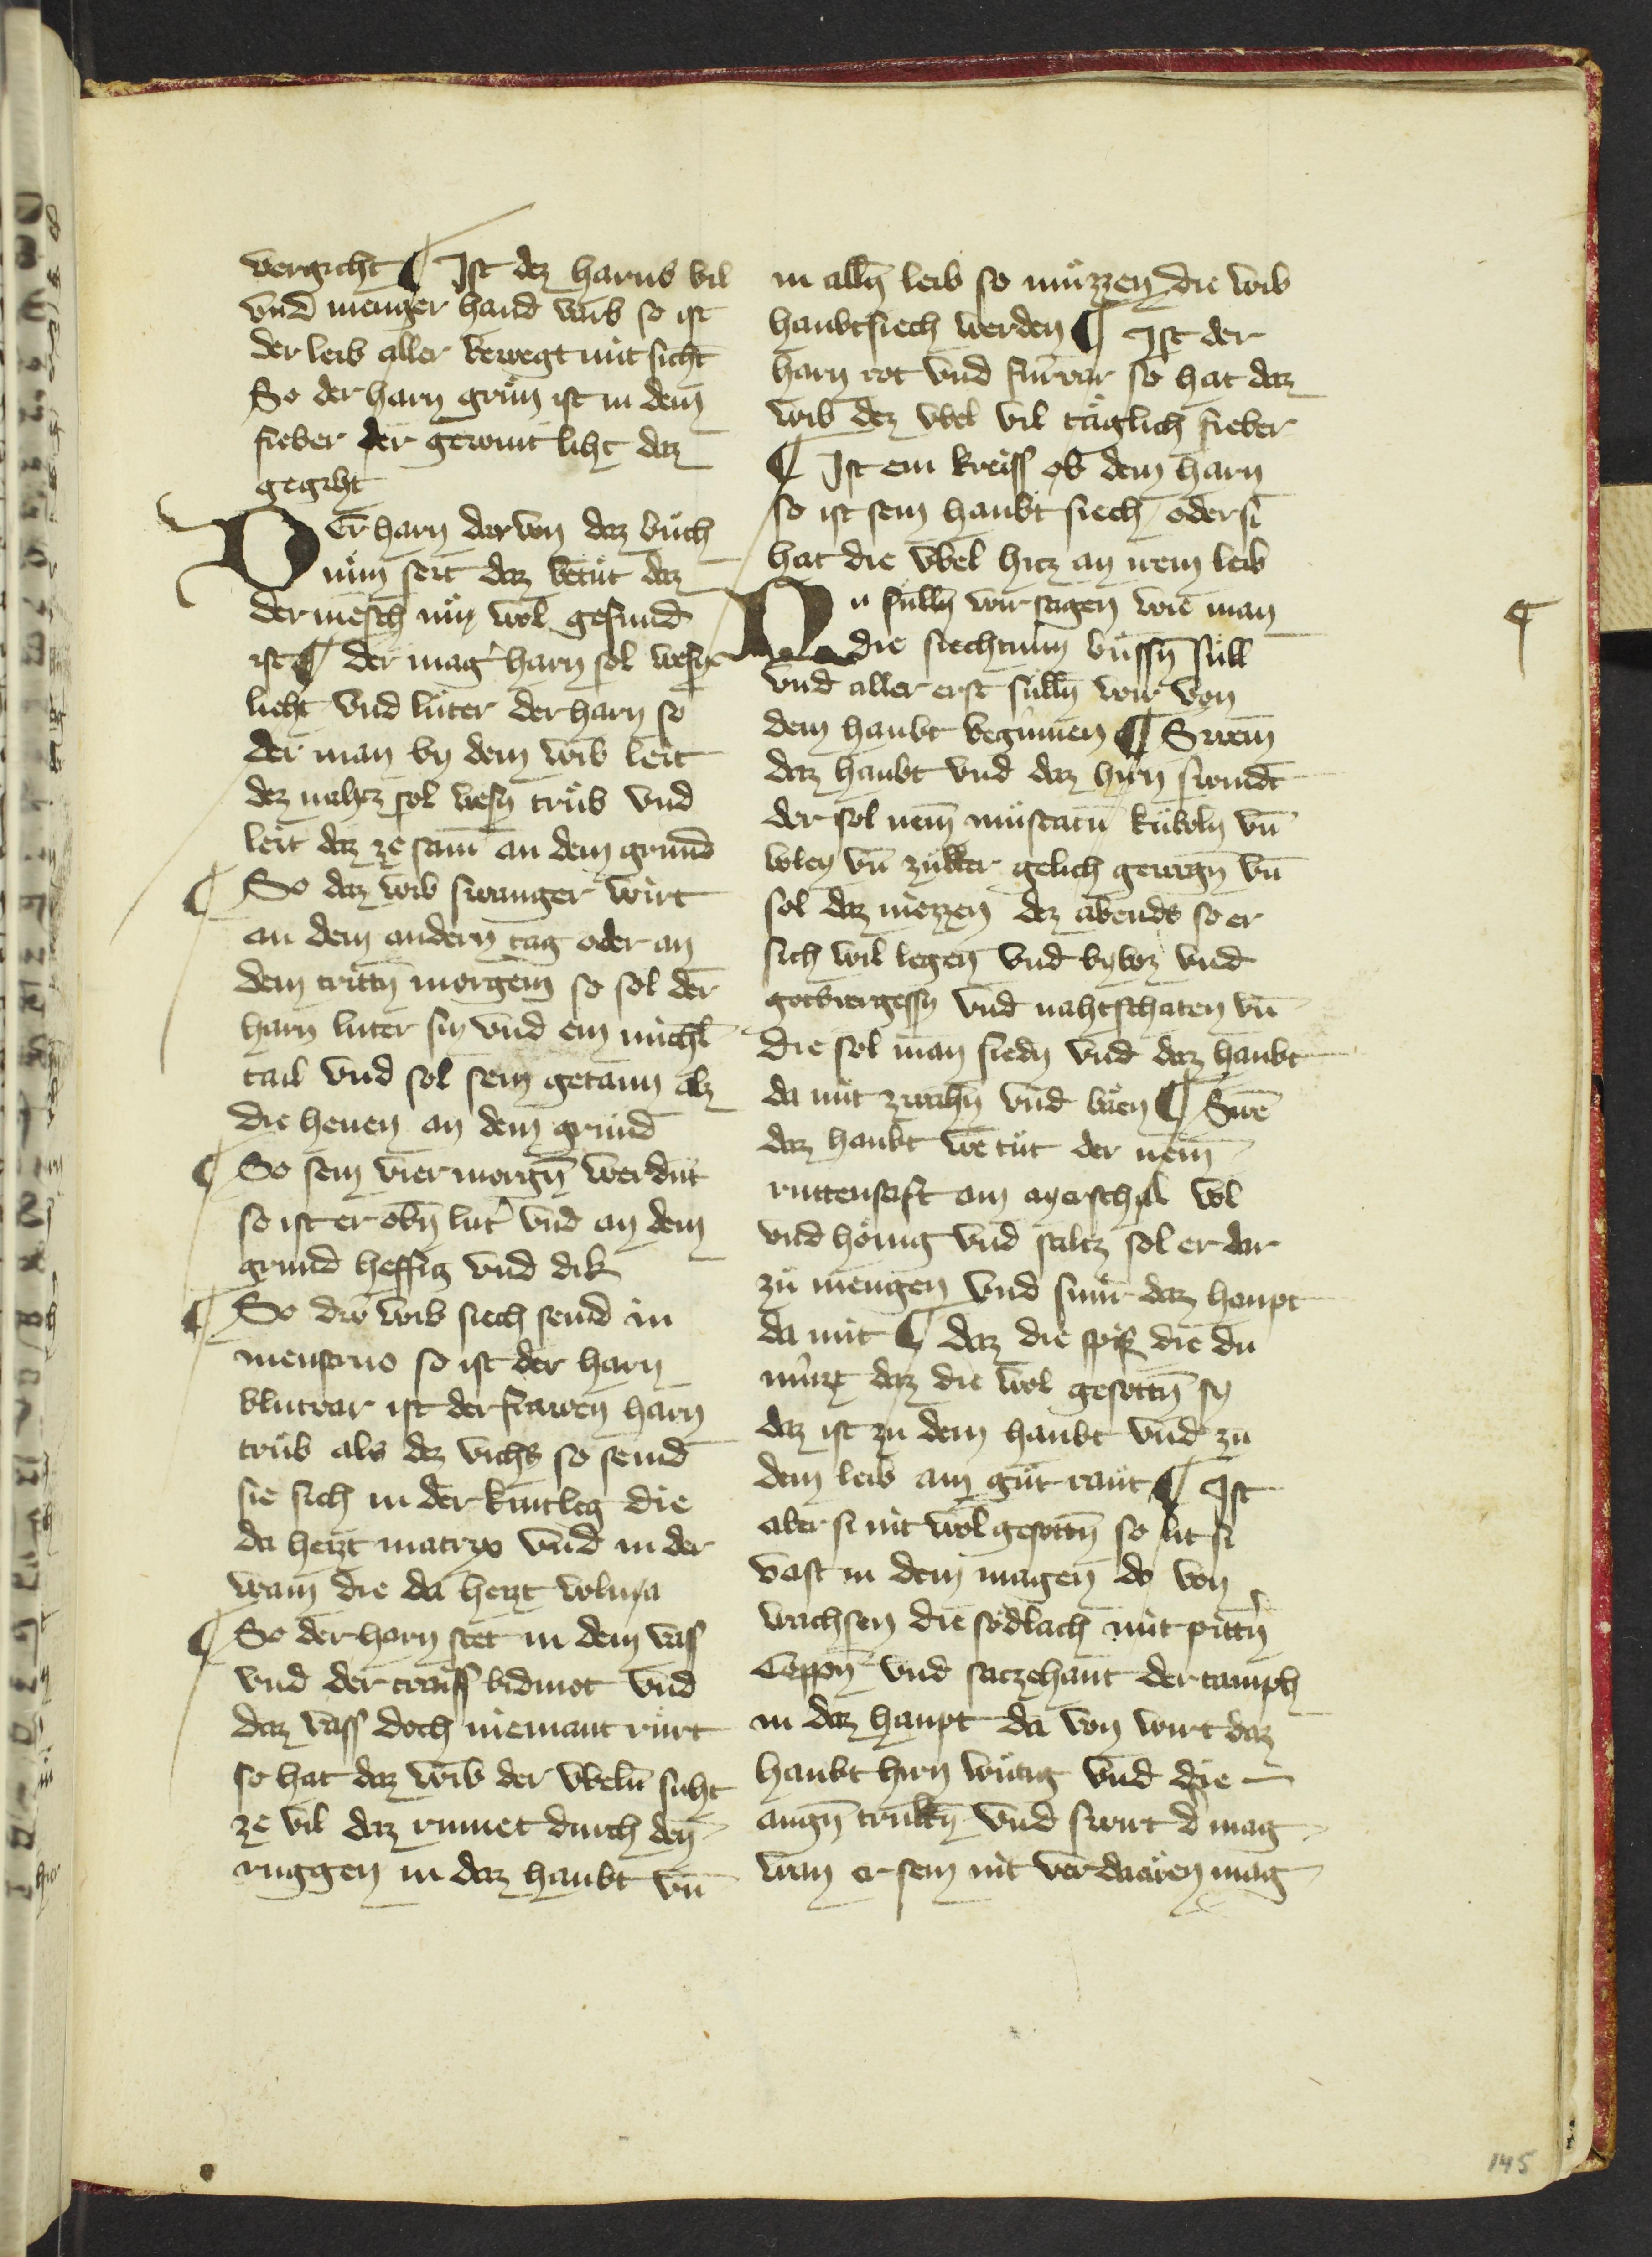 vergicht ¶ Ist dez harns vil
vnd menger hand varb so ist
der leib aller bewegt mit sicht
So der harn grün ist in dem
fieber der gewint liht daz
gegiht
Der harn dar von daz bůch
nům seit daz betůt daz
der mēsch nun wol gesund
ist ¶ der mag harn sol wesen
lieht vnd luter der harn so
der man by dem wib leit
dez nahtz sol wesn trůb vnd
leit daz ze sam an dem grund
¶ So daz wib swanger wirt
an dem andern tag oder an
dem trittn morgem so sol der
harn luter sin vnd ein michl
tail vnd sol sein getann alz
die heuen an dem grund
¶ So sein vier morgn̄ werdnt
so ist er obn̄ lut' vnd an dem
grund heffig vnd dik
¶ So diw wib siech seind in
menstruo so ist der harn
blutvar ist der frawen harn
trůb als dez vichs so seind
sie sich in der kintleg die
da heizt matryx vnd in der
wam die da heizt wlua
¶ So der harn stet in dem vas
vnd der craiss bidmot vnd
daz vass doch niemant růrt
so hat daz wib der vbeln suht
ze vil daz rinnet durch den
ruggen in daz haubt vn̄
in alln̄ leib so můzzen die wib
haubtsiech werden ¶ Ist der
harn rot vnd fiurvar so hat daz
wib dez vbel vil täglich fieber
¶ Ist ein kreiss ob dem harn
so ist sein haubt siech oder si
hat die vbel hicz an irem leib
Nu sulln̄ wir sagen wie man
die siechtum bůssn̄ süll
vnd aller erst sulln̄ wir von
dem haubt beginnen ¶ Swem̄
daz haubt vnd daz hirn swindt
der sol nem̄ muscatn̄ kůboln vn̄
wlen vn̄ zukker gelich gewegn̄ vn̄
sol daz niezzen dez abends so er
sich wil legen vnd byboz vnd
gotvergessn vnd nahtschaten vn̄
die sol man siedn vnd daz haubt
da mit zwahn̄ vnd bäen ¶ Swē
daz haubt we tůt der nem̄
ruttensaft ain ayerschal vol
vnd hönig vnd saltz sol er dar
zů mengen vnd smir daz haupt
da mit ¶ daz die spis die du
nůizt daz die wol gesottn̄ sy
daz ist zu dem haubt vnd zu
dem leib ain gůt raut ¶ Ist
aber si nit wol gesottn̄ so lit si
vast in dem magen do von
wachsen die södlach mit pittn̄
Coppn̄ vnd saczehant der tamph
in daz haupt da von wirt daz
haubt hirn wůtig vnd die
augn̄ trukn̄ vnd swirt d' mag
wan er sein nit verdauwen mag
¶
145